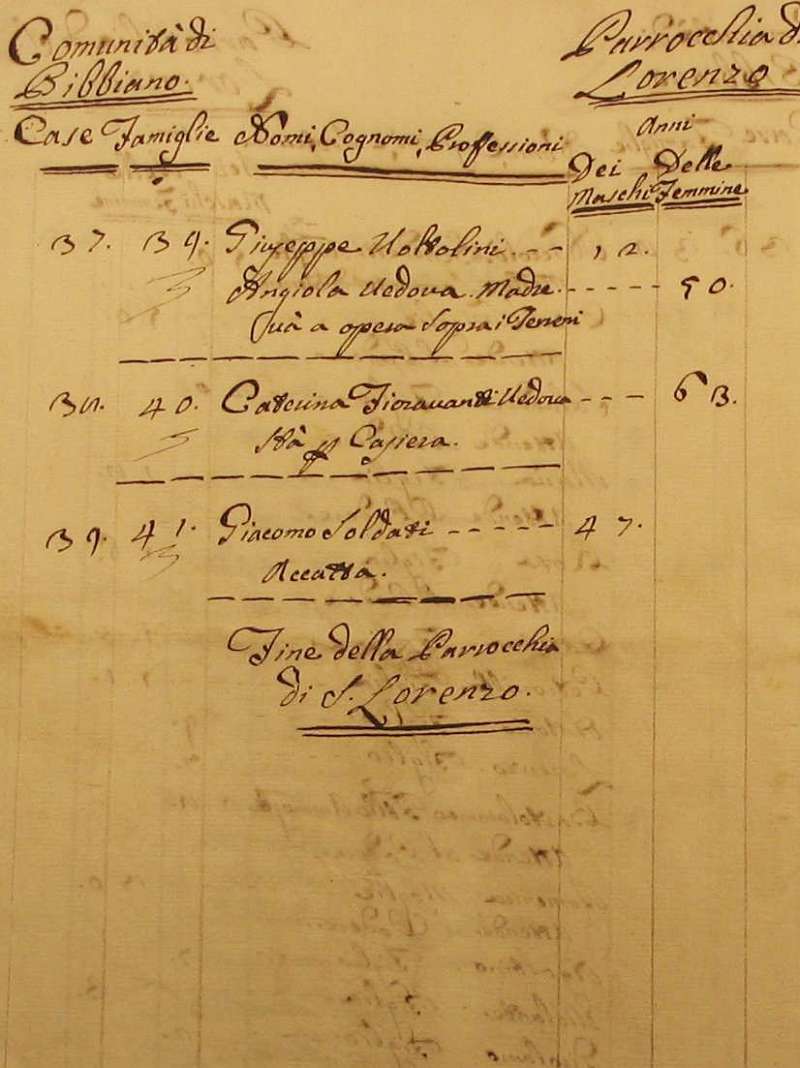 Comunità di
Bibbiano.
Parrocchia di
Lorenzo
Case Famiglie Nomi, Cognomi, Proffessioni
Anni
Dei Maschi Delle Femmine
37. 39. Giuseppe Uottolini -- 12.
Angiola Vedova Madre ------ 50.
Và a opera Sopra i Terreni
38. 40. Caterina Fioravanti Vedova --- 63.
Stà p Casiera.
39. 41. Giacomo Soldati ------ 47.
Accatta.
Fine della Parrocchia
di S. Lorenzo.